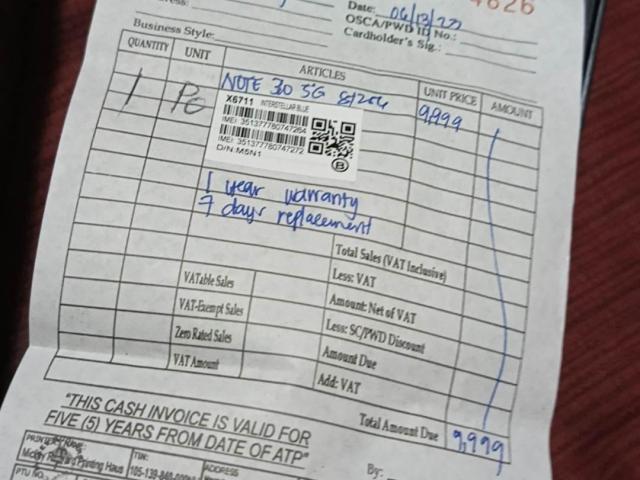 Date: 06/13/23
4626
OSCA/PWD ID No.:
Cardholder's Sig.:
Business Style:
QUANTITY UNIT ARTICLES UNIT PRICE AMOUNT
1 Pc NOTE 30 5G 8/256 9,999
X6711 INTERSTELLAR BLUE
IMEI: 351377780747264
IMEI: 351377780747272
D/N:M5N1
B
1 year warranty
7 days replacement
Total Sales (VAT Inclusive)
Less: VAT
VATable Sales Amount: Net of VAT
VAT-Exempt Sales Less: SC/PWD Discount
Zero Rated Sales Amount Due
VAT Amount Add: VAT
Total Amount Due 9,999
"THIS CASH INVOICE IS VALID FOR
FIVE (5) YEARS FROM DATE OF ATP"
By:
Printing Haus TIN: ADDRESS
PTU NO.